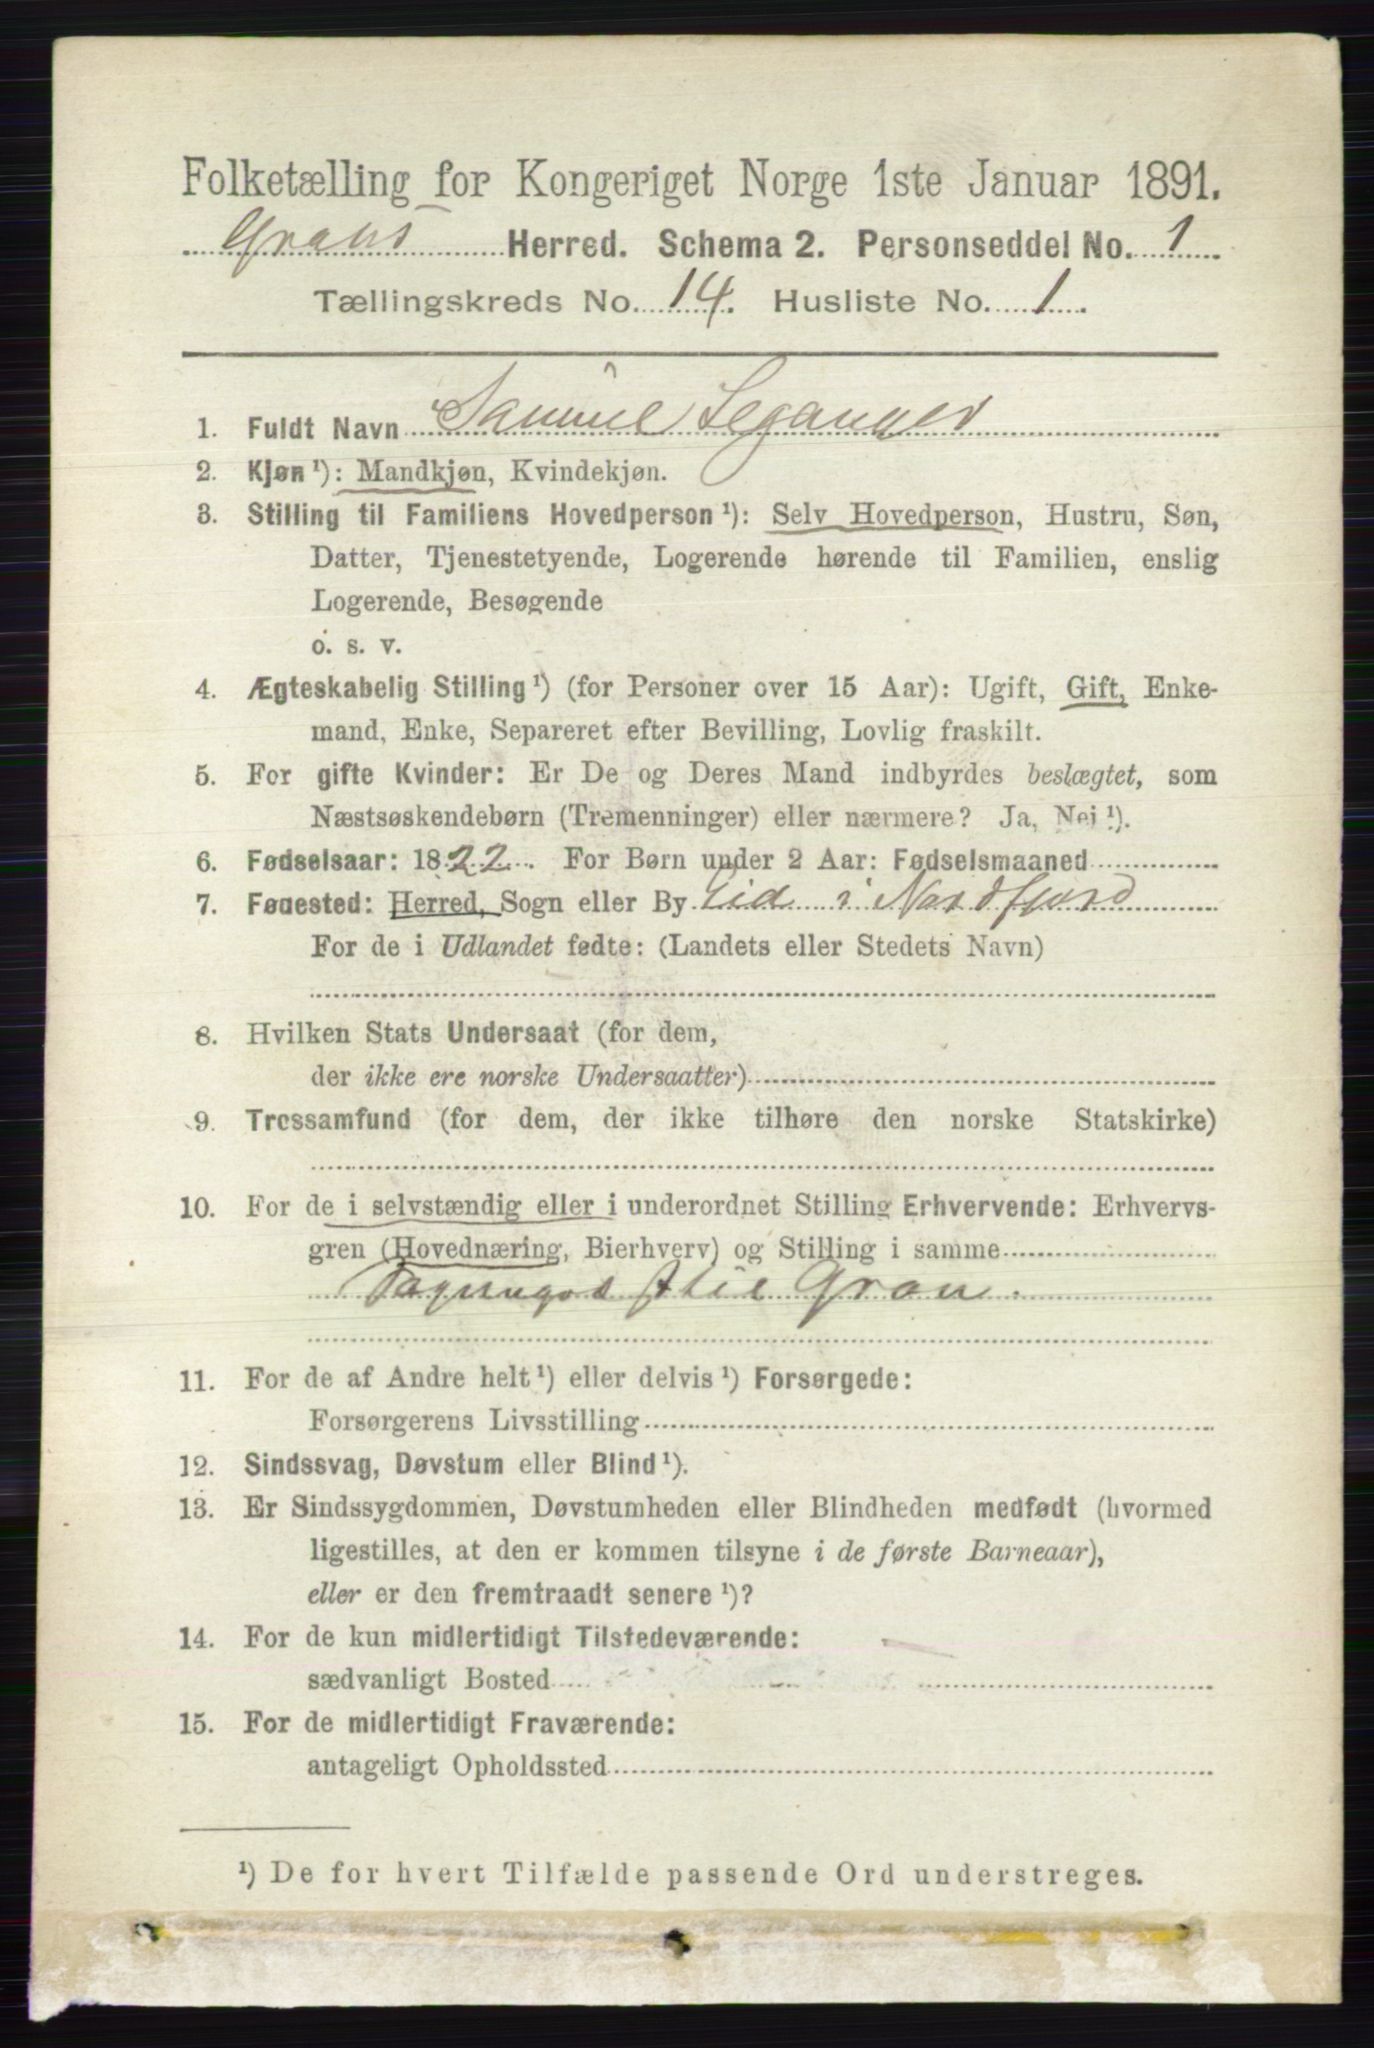 Folketælling for Kongeriget Norge 1ste Januar 1891.
Grans Herred. Schema 2. Personseddel No. 1
Tællingskreds No. 14. Husliste No. 1
1. Fuldt Navn Samuel Leganger
2. Kjøn ¹): Mandkjøn, Kvindekjøn.
3. Stilling til Familiens Hovedperson ¹): Selv Hovedperson, Hustru, Søn,
Datter, Tjenestetyende, Logerende hørende til Familien, enslig
Logerende, Besøgende
o. s. v.
4. Ægteskabelig Stilling ¹) (for Personer over 15 Aar): Ugift, Gift, Enke-
mand, Enke, Separeret efter Bevilling, Lovlig fraskilt.
5. For gifte Kvinder: Er De og Deres Mand indbyrdes beslægtet, som
Næstsøskendebørn (Tremenninger) eller nærmere? Ja, Nei ¹).
6. Fødselsaar: 1822. For Børn under 2 Aar: Fødselsmaaned
7. Føuested: Herred, Sogn eller By Eid i Nordfjord
For de i Udlandet fødte: (Landets eller Stedets Navn)
8. Hvilken Stats Undersaat (for dem,
der ikke ere norske Undersaatter)
9. Trossamfund (for dem, der ikke tilhøre den norske Statskirke)
10. For de i selvstændig eller i underordnet Stilling Erhvervende: Erhvervs-
gren (Hovednæring, Bierhverv) og Stilling i samme
Sogneprest til Gran.
11. For de af Andre helt ¹) eller delvis ¹) Forsørgede:
Forsørgerens Livsstilling
12. Sindssvag, Døvstum eller Blind ¹).
13. Er Sindssygdommen, Døvstumheden eller Blindheden medfødt (hvormed
ligestilles, at den er kommen tilsyne i de første Barneaar),
eller er den fremtraadt senere ¹)?
14. For de kun midlertidigt Tilstedeværende:
sædvanligt Bosted
15. For de midlertidigt Fraværende:
antageligt Opholdssted
¹) De for hvert Tilfælde passende Ord understreges.